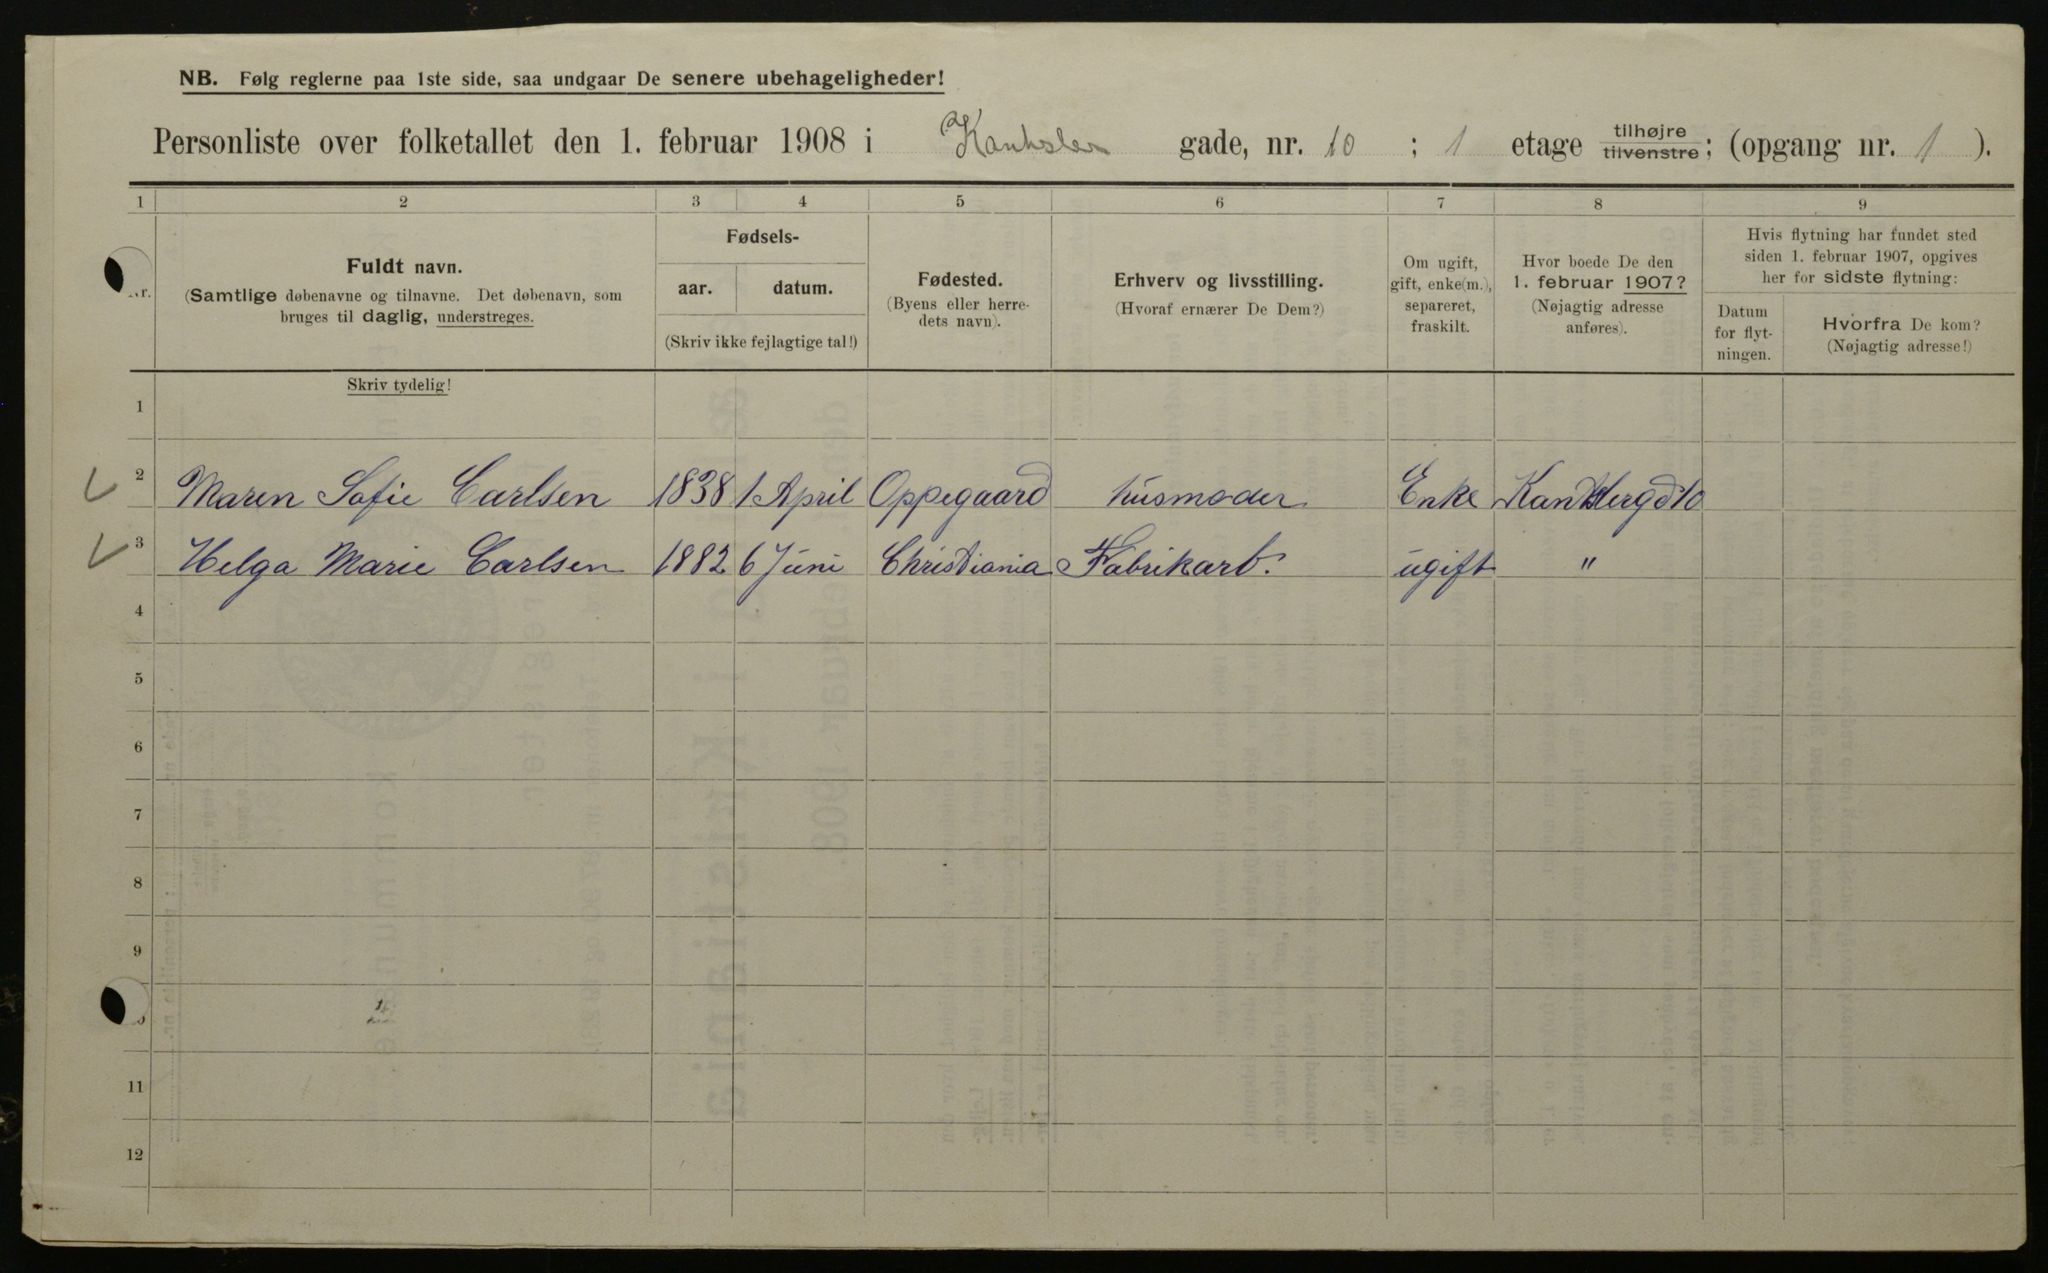 NB. Følg reglerne paa 1ste side, saa undgaar De senere ubehageligheder!
Personliste over folketallet den 1. februar 1908 i Kantsler gade, nr. 10 ; 1 etage tilhøjre tilvenstre; (opgang nr. 1 ).
1 2 3 4 5 6 7 8 9
Nr.
Fuldt navn.
(Samtlige døbenavne og tilnavne. Det døbenavn, som
bruges til daglig, understreges.
Skriv tydelig!
Fødsels-
aar. datum.
(Skriv ikke fejlagtige tal!)
Fødested.
(Byens eller herre-
dets navn).
Erhverv og livsstilling.
(Hvoraf ernærer De Dem?)
Om ugift,
gift, enke(m.),
separeret,
fraskilt.
Hvor boede De den
1. februar 1907?
(Nøjagtig adresse
anføres).
Hvis flytning har fundet sted
siden 1. februar 1907, opgives
her for sidste flytning:
Datum
for flyt-
ningen.
Hvorfra De kom?
(Nøjagtig adresse!)
1
2 Maren Sofie Carlsen 1838 1 April Oppegaard husmoder Enke Kantslergd 10
3 Helga Marie Carlsen 1882 6 Juni Christiania Fabrikarb. ugift "
4
5
6
7
8
9
11
12